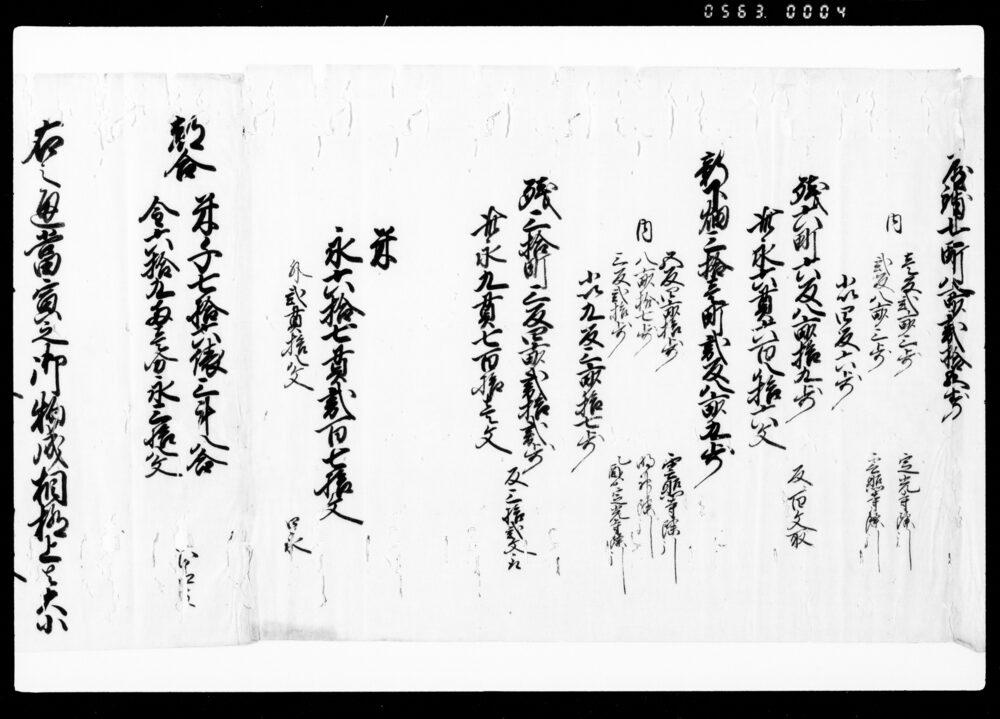 0563.0004
屋鋪七町八畝弐拾五歩
内
壱反弐畝三歩 定光寺除
弐反八畝三歩 雲照寺除
小以四反六歩
残六町六反八畝拾九歩 反百文取
此永六貫六百八拾六文
新下畑三拾壱町弐反八畝五歩
五反四畝拾歩 雲照寺除
内
八畝拾七歩 明神除
三反弐拾歩 定光寺除
小以九反三畝拾七歩
残三拾町三反四畝弐拾弐歩 反三拾弐文取
此永九貫七百拾壱文
米
永六拾七貫弐百七拾文
永弐貫拾八文 口永
都合
米千七拾六俵三斗八合
金六拾九両壱分永三拾八文
右之通當寅之御物成相極上者大小